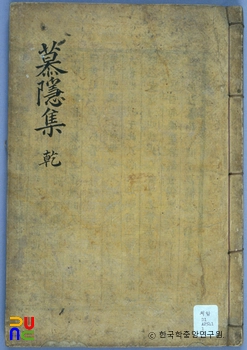 慕隱集
乾
ⓒ 한국학중앙연구원